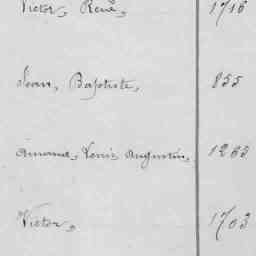 Victor, René, 1716
Jean, Baptiste, 855
Amand, Louis Augustin, 1265
Victor, 1703